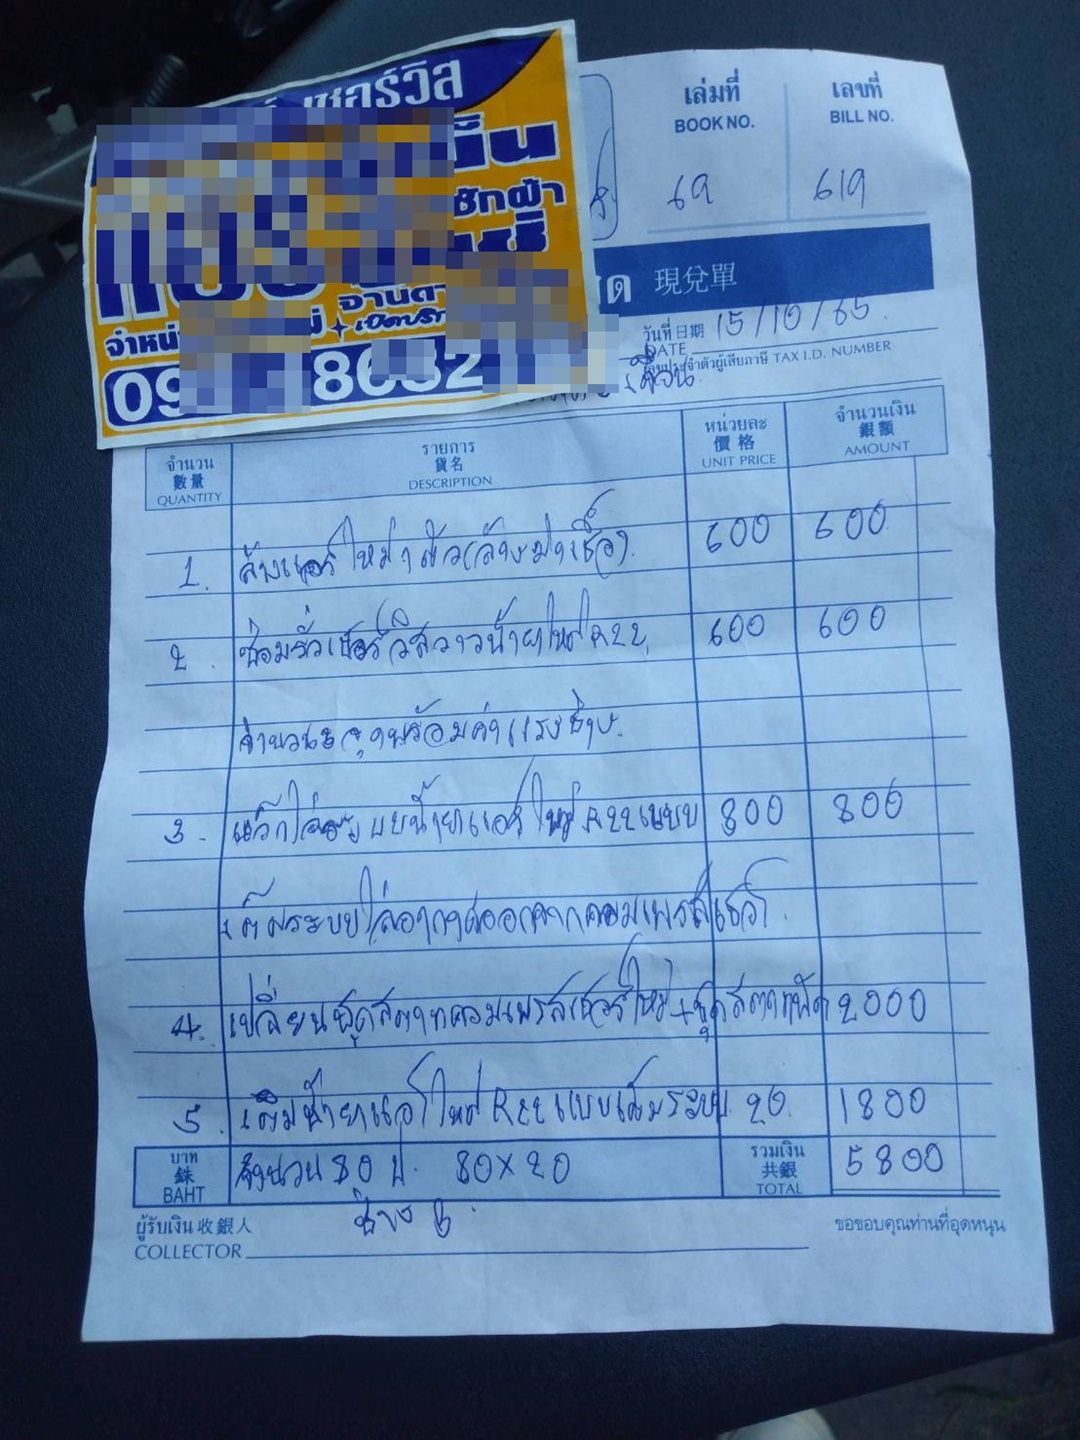 เซอร์วิส
ซักผ้า
09 8632
เล่มที่ เลขที่
BOOK NO. BILL NO.
69 619
สด 現兌單
วันที่ 日期 15/10/65
DATE
เลขประจำตัวผู้เสียภาษี TAX I.D. NUMBER
จำนวน 數量 QUANTITY รายการ 貨名 DESCRIPTION หน่วยละ 價格 UNIT PRICE จำนวนเงิน 銀額 AMOUNT
1. ล้างแอร์ใหม่ 1 ตัว(ล้างฆ่าเชื้อ) 600 600
2. ซ่อมรั่วเซอร์วิสวาวน้ำยาใหม่ R22 600 600
จำนวน 2 จุดพร้อมค่าแรงช่าง
3. แว็กไล่ระบบน้ำยาแอร์ใหม่ R22แบบ 800 800
เต็มระบบไล่อากาศออกจากคอมเพรสเซอร์
4. เปลี่ยนชุดสตาทคอมเพรสเซอร์ใหม่+ชุดสตาทพัด 2000
5. เติมน้ำยาแอร์ใหม่ R22แบบเต็มระบบ 20 1800
บาท 銖 BAHT จำนวน 80 ป 80×20 รวมเงิน 共銀 TOTAL 5800
ผู้รับเงิน 收銀人 ช่าง ขอขอบคุณท่านที่อุดหนุน
COLLECTOR